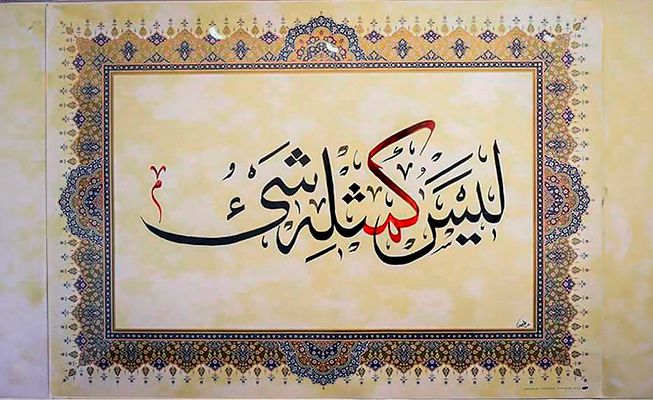 لَيسَ كَمِثلِهِ شَئ